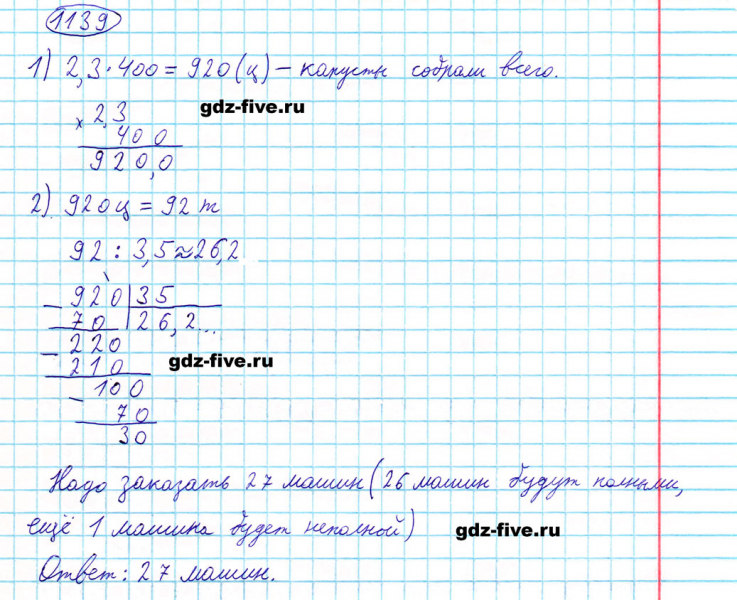 1139
1) 2,3 · 400 = 920 (ц) – капусты собрали всего.
gdz-five.ru
× 2,3
400
920,0
2) 920 ц = 92 т
92 : 3,5 ≈ 26,2
– 920 | 35
70 | 26,2...
– 220
210
gdz-five.ru
– 100
70
30
Надо заказать 27 машин (26 машин будут полными,
ещё 1 машина будет неполной)
gdz-five.ru
Ответ: 27 машин.